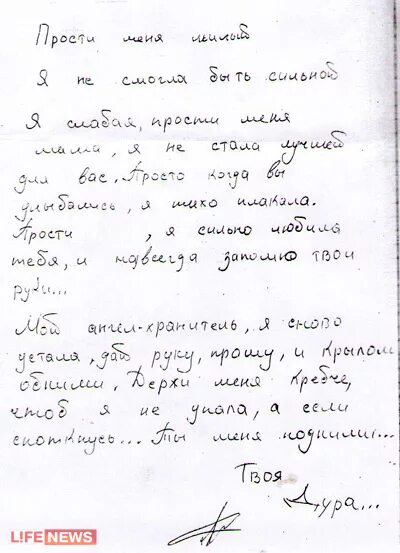 Прости меня милый
Я не смогла быть сильной
Я слабая, прости меня
мама, я не стала лучшей
для вас. Просто когда вы
улыбались, я тихо плакала.
Прости , я сильно любила
тебя, и навсегда запомню твои
руки...
Мой ангел-хранитель, я снова
устала, дай руку, прошу, и крылом
обними. Держи меня крепче,
чтоб я не упала, а если
споткнусь... Ты меня подними...
Твоя
Дура...
LIFENEWS